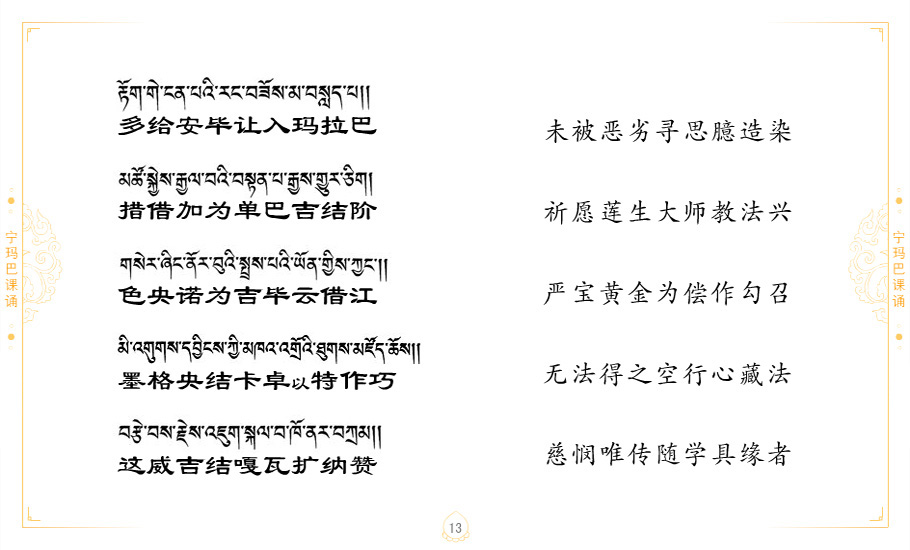 རྟོག་གེ་ངན་པའི་རང་བཟོས་མ་བསླད་པ།།
多给安毕让入玛拉巴
未被恶劣寻思臆造染
མཚོ་སྐྱེས་རྒྱལ་བའི་བསྟན་པ་རྒྱས་གྱུར་ཅིག།
措借加为单巴吉结阶
祈愿莲生大师教法兴
གསེར་ཞིང་ནོར་བུའི་སྤྲས་པའི་ཡོན་གྱིས་ཀྱང་།།
色央诺为吉毕云借江
严宝黄金为偿作勾召
མི་འགུགས་དབྱིངས་ཀྱི་མཁའ་འགྲོའི་ཐུགས་མཛོད་ཆོས།།
墨格央结卡卓以特作巧
无法得之空行心藏法
བརྩེ་བས་རྗེས་འཇུག་སྐལ་བ་ཁོ་ནར་བཀྲམ།།
这威吉结嘎瓦扩纳赞
慈悯唯传随学具缘者
宁玛巴课诵
宁玛巴课诵
13